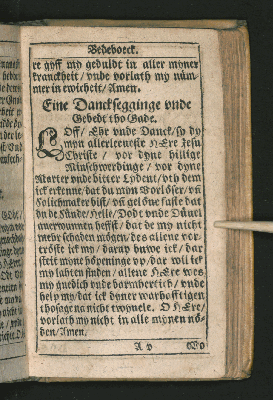 Bedeboeck.
re gyff my geduldt in aller myner
kranckheit / vnde vorlath my nüm-
mer in ewicheit / Amen.
Eine Dancksegginge vnde
Gebedt tho Gade.
LOff / Ehr vnde Danck / sy dy
myn allerleueste HEre Jesu
Christe / vor dyne hillige
Minschwerdinge / vor dyne
Marter vnde bitter Lydent / vth dem
ick erkenne / dat du myn Vorlöser / vñ
Salichmaker bist / vñ gelöue faste dat
du de Sünde / Helle / Dodt vnde Düuel
auerwunnen heffst / dat de my nicht
mehr schaden mögen / des allent vor-
tröste ick my / darup buwe ick / dar
sette ick myne höpeninge vp / dar wil ick
my laten finden / allene HEre wes
my gnedich vnde barmhertich / vnde
help my / dat ick dyner warhafftigen
thosage na nicht twyuele. O HEre /
vorlath my nicht in alle mynen nö-
den / Amen.
A v